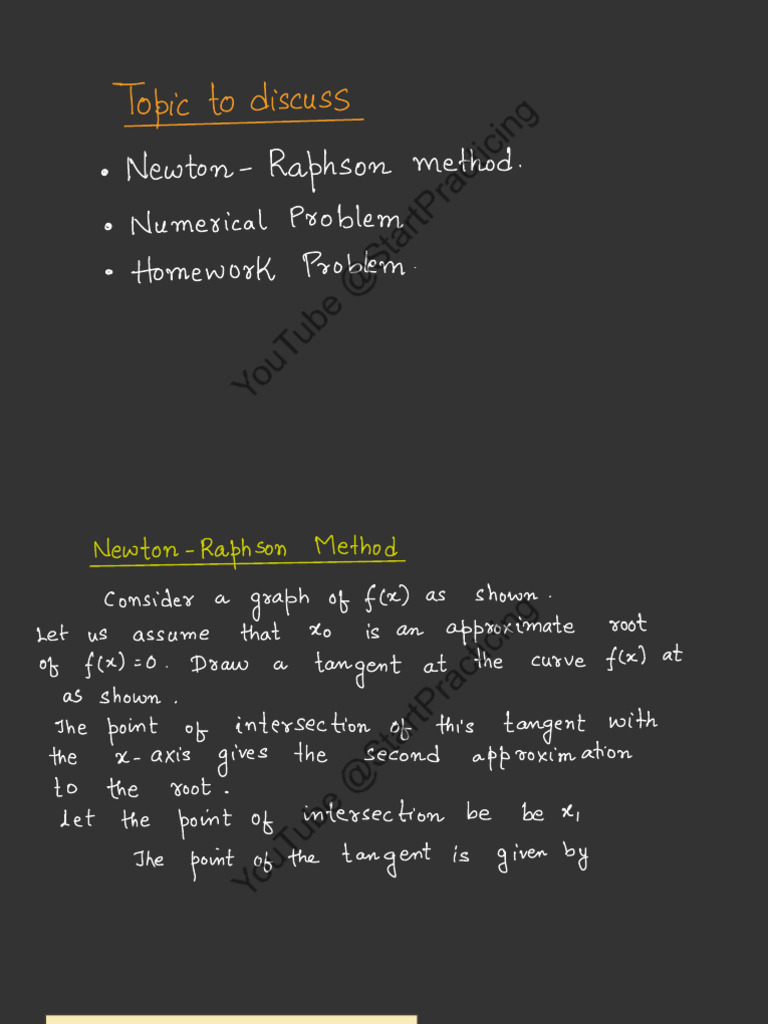 Topic to discuss
• Newton - Raphson method.
• Numerical Problem
• Homework Problem.
YouTube @StartPracticing
Newton - Raphson Method
Consider a graph of f(x) as shown.
Let us assume that x₀ is an approximate root
of f(x) = 0. Draw a tangent at the curve f(x) at
as shown.
The point of intersection of this tangent with
the x-axis gives the second approximation
to the root.
Let the point of intersection be be x₁
The point of the tangent is given by
YouTube @StartPracticing